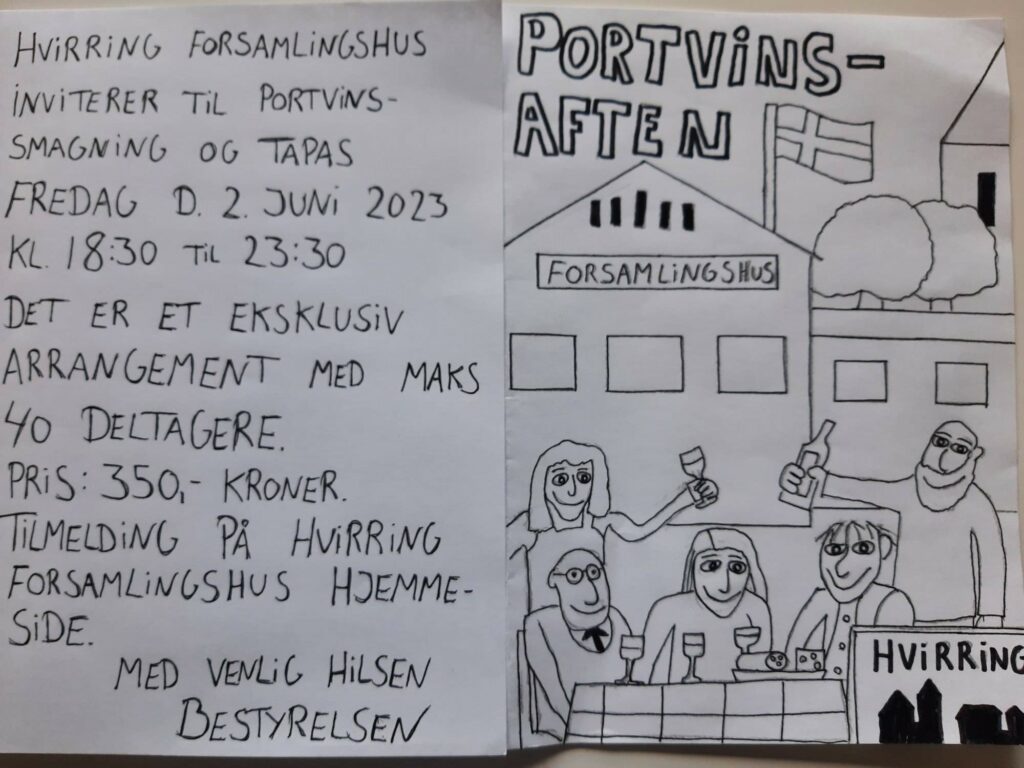 HVIRRING FORSAMLINGSHUS
INVITERER TIL PORTVINS-
SMAGNING OG TAPAS
FREDAG D. 2. JUNI 2023
KL. 18:30 TIL 23:30
DET ER ET EKSKLUSIV
ARRANGEMENT MED MAKS
40 DELTAGERE.
PRIS: 350,- KRONER.
TILMELDING PÅ HVIRRING
FORSAMLINGSHUS HJEMME-
SIDE.
MED VENLIG HILSEN
BESTYRELSEN
PORTVINS-
AFTEN
FORSAMLINGSHUS
HVIRRING